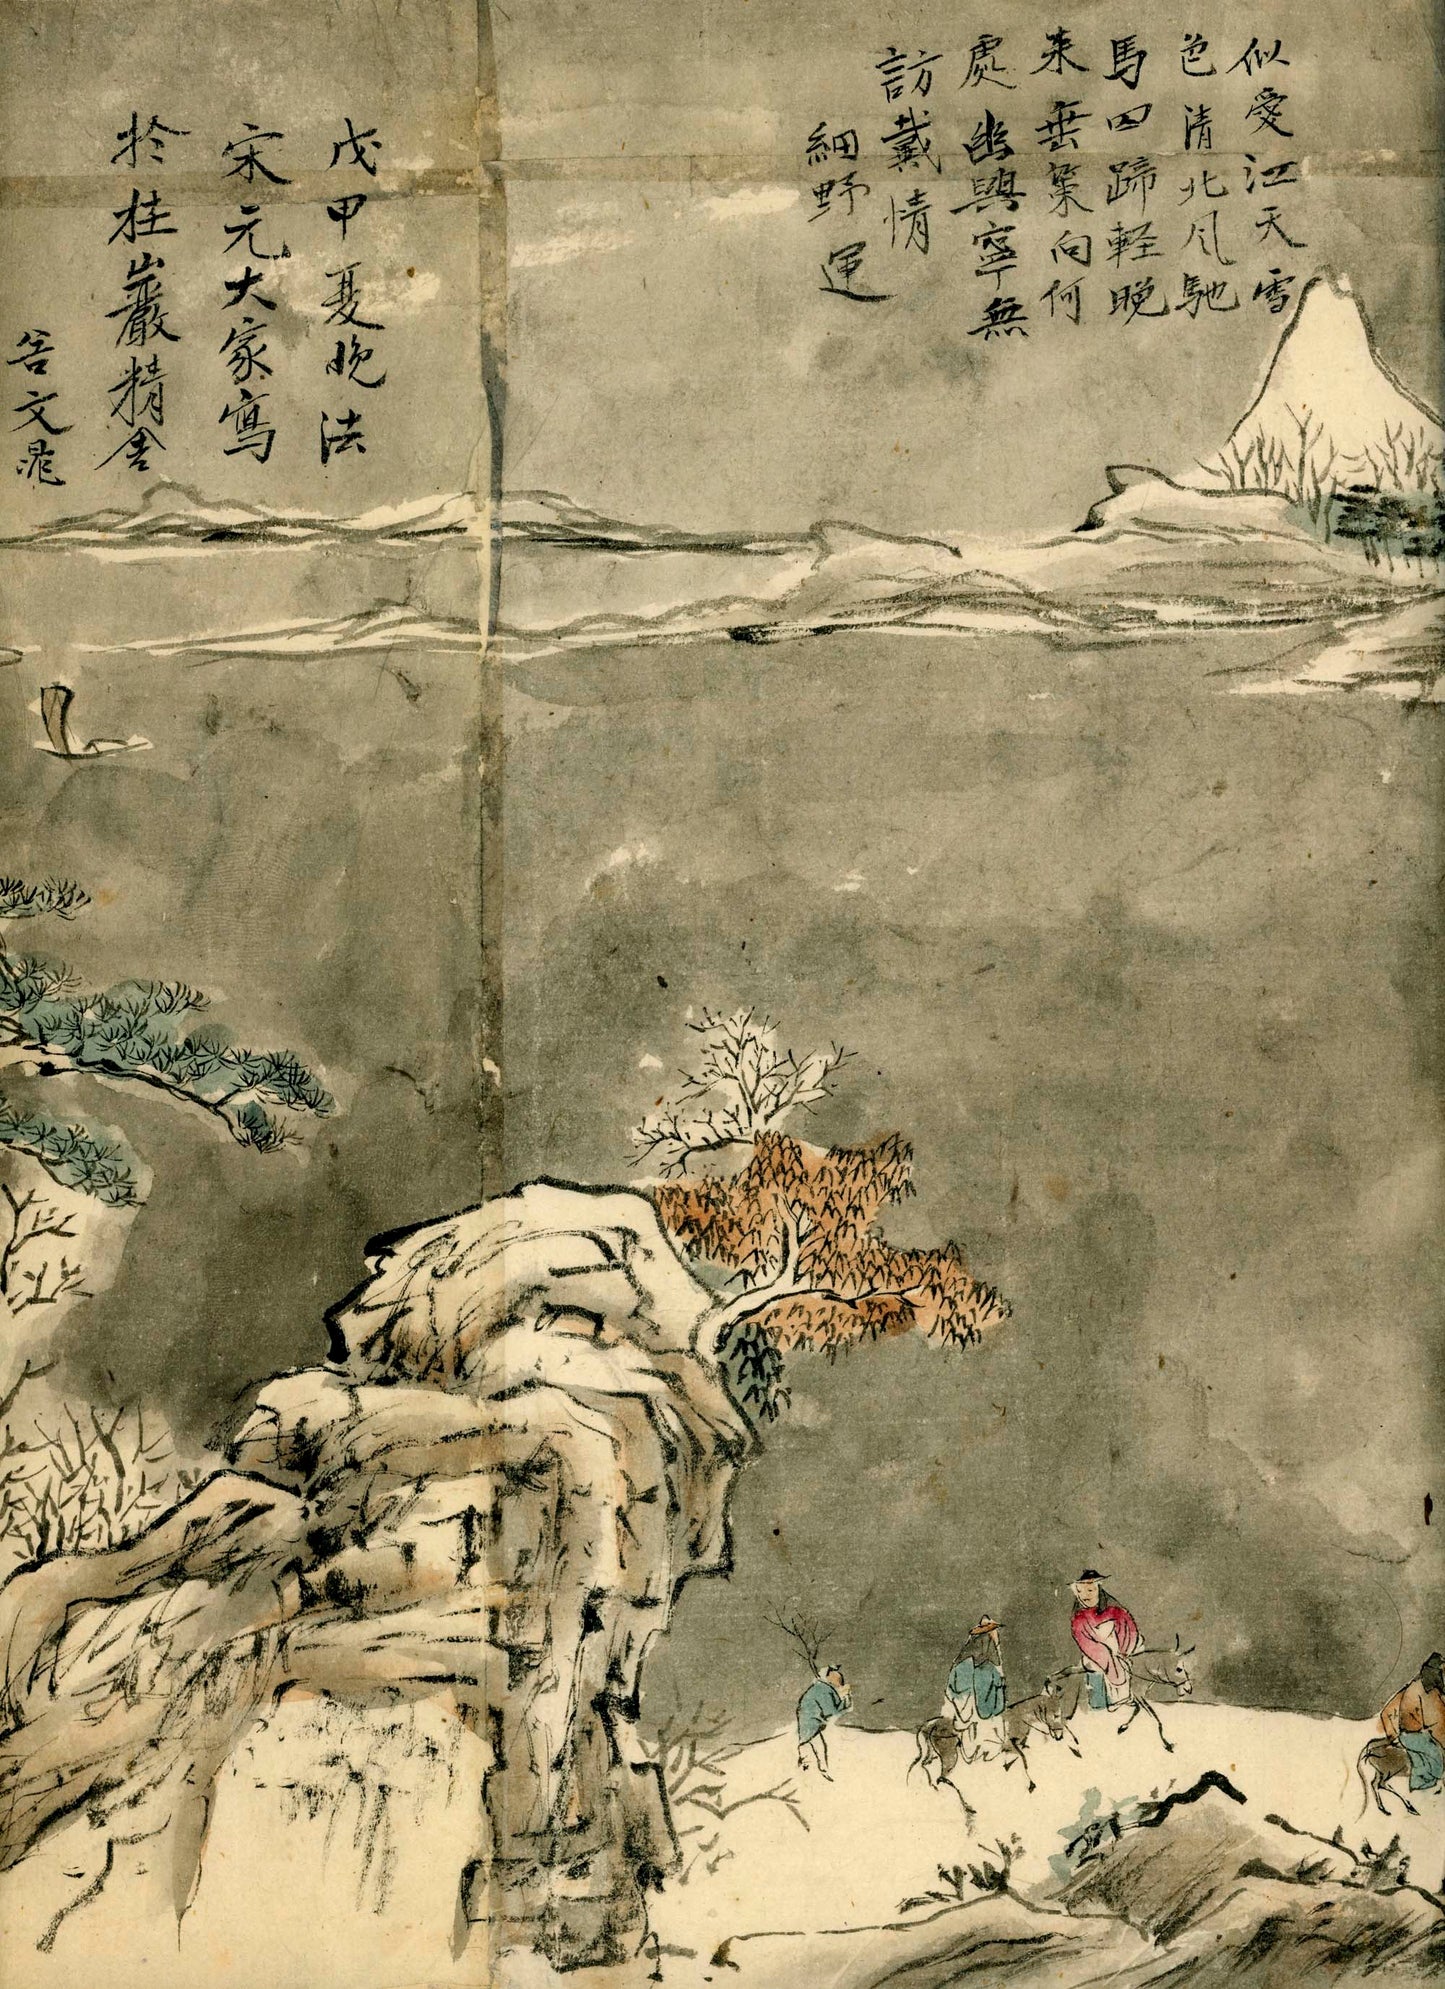 似愛江天雪
色清北風馳
馬四蹄軽晚
来垂策向何
處幽興寧無
訪戴情
細野運
戊甲夏晚法
宋元大家寫
於桂巖精舍
谷文晁